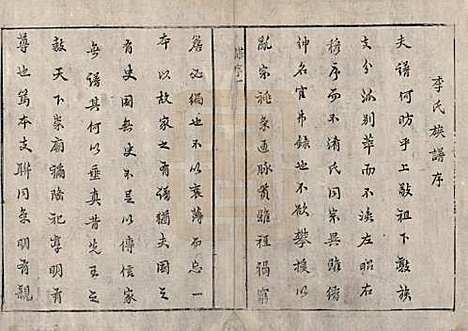 李氏族譜序
夫譜何昉乎上敬祖下敦族
支分派別萃而不渙左昭右
穆序而不淆氏同宗異雖縉
紳名宦弗錄也不欲攀援以
亂宗祧系連脈貫雖種禍
譜序一
必編也不以衰薄而忘一
本以故家之有譜猶夫國之
有史國無史不足以傳信家
無譜其何以垂真昔先王之
教天下宗廟禘陰祀享明有
尊也篤本支聯同系明有親